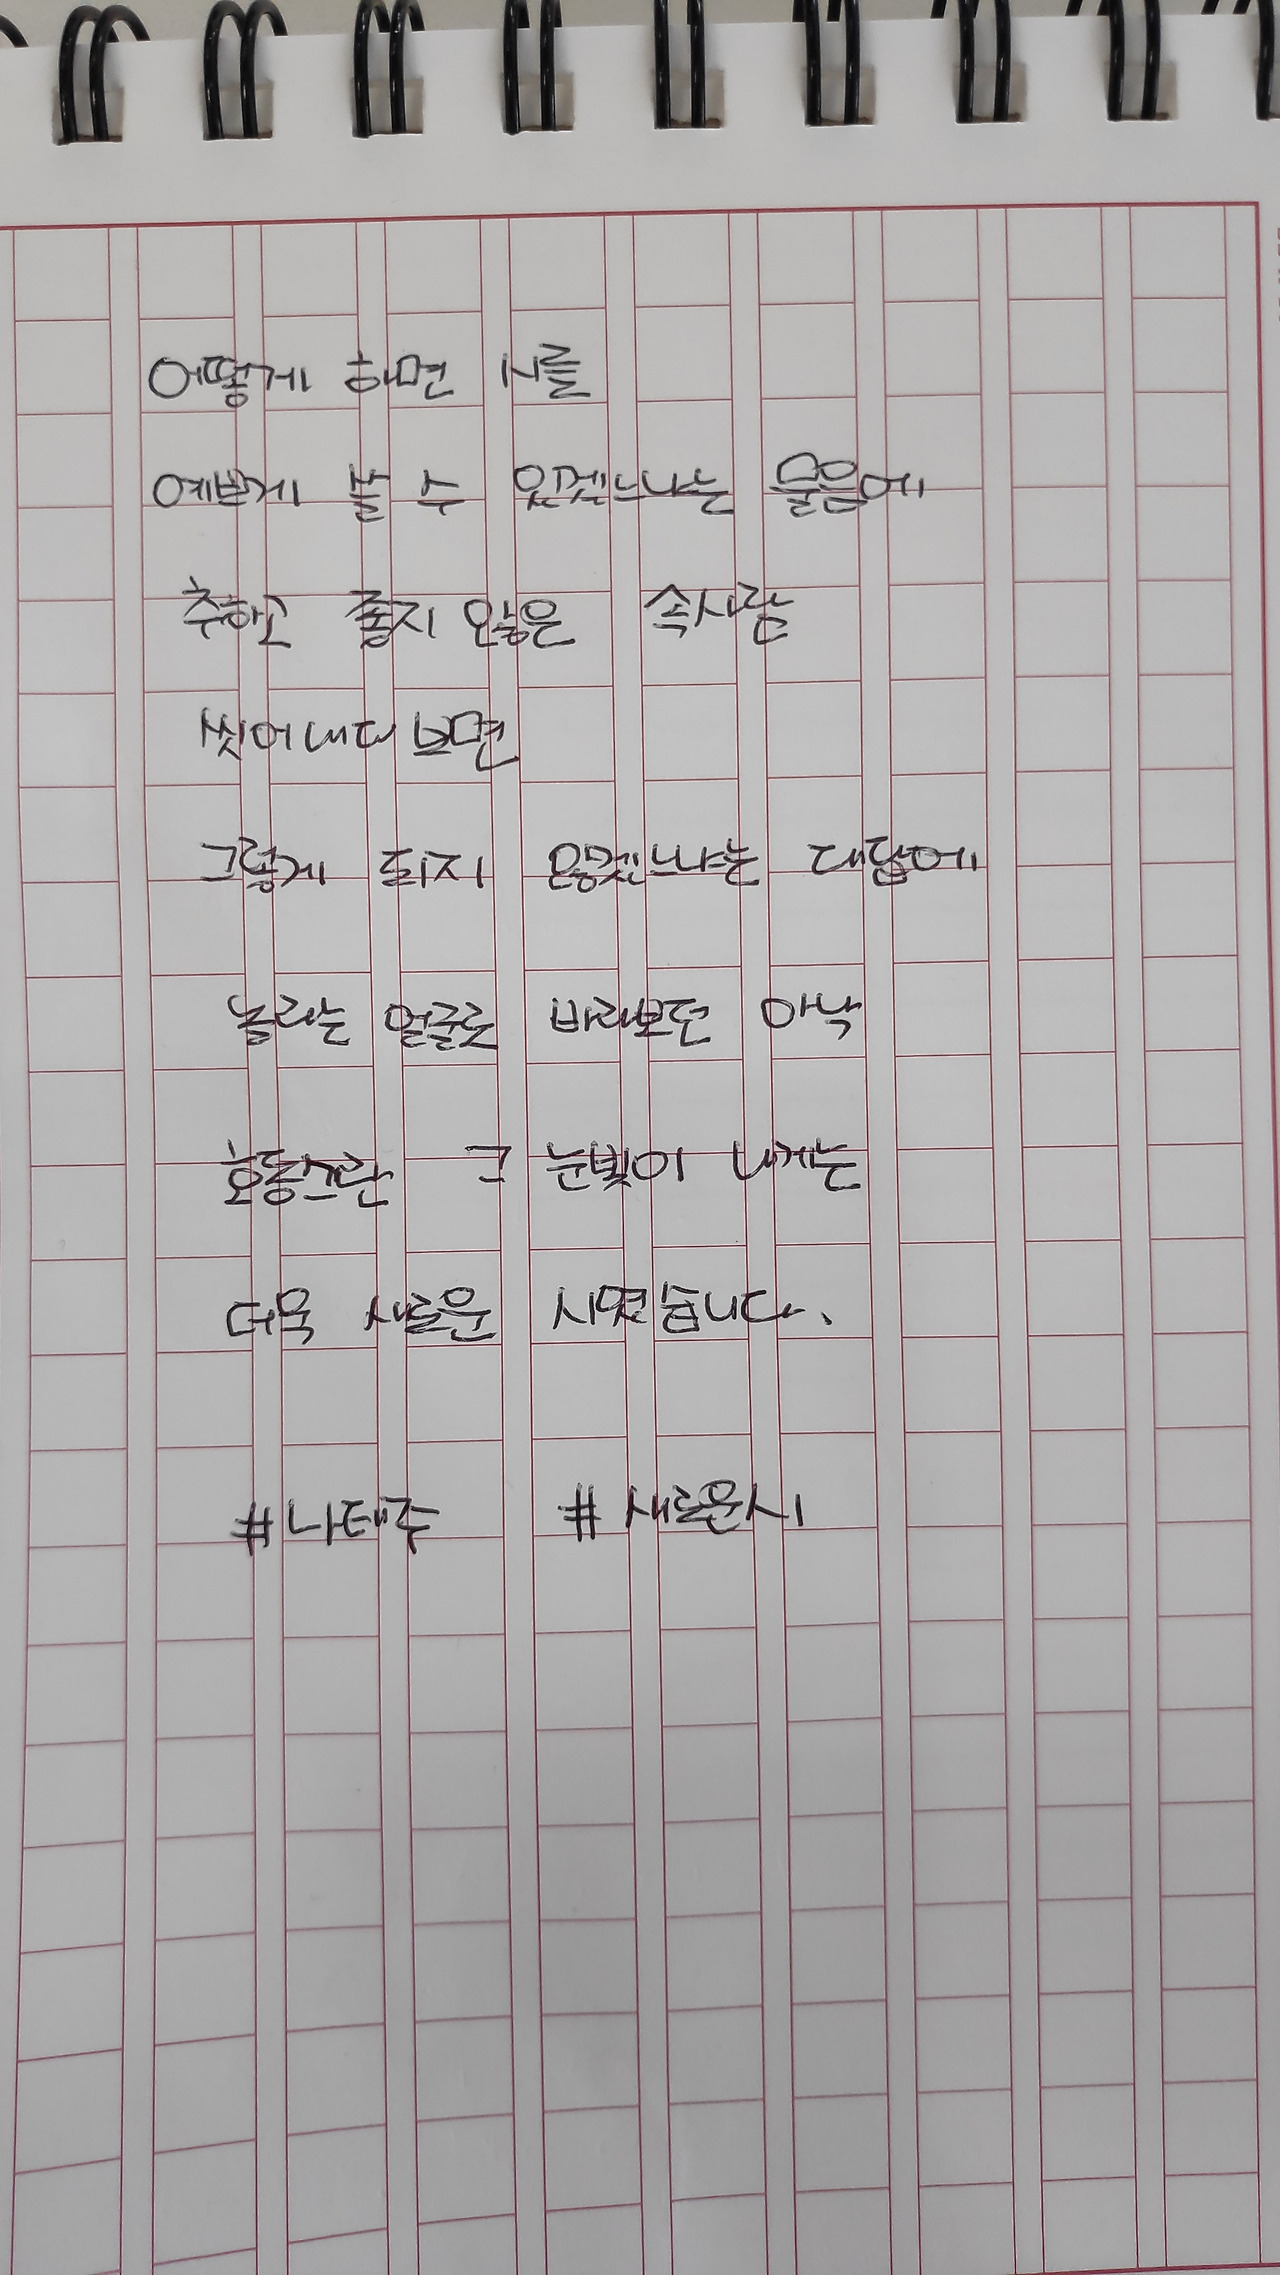 어떻게 하면 시를
예쁘게 쓸 수 있겠느냐는 물음에
추하고 좋지 않은 속사람
씻어내다 보면
그렇게 되지 않겠느냐는 대답에
놀라는 얼굴로 바라보던 아낙
호동그란 그 눈빛이 내게는
더욱 새로운 시였습니다.
#나태주 #새로운시